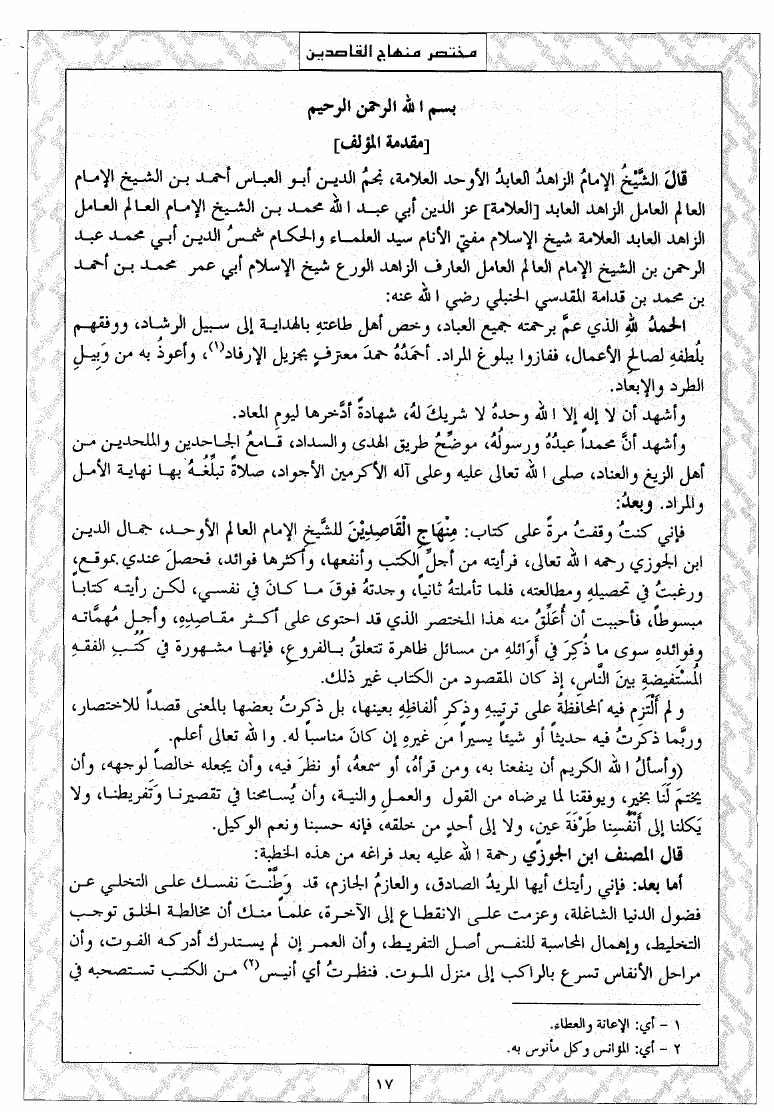 مختصر منهاج القاصدين
بسم الله الرحمن الرحيم
[مقدمة المؤلف]
قالَ الشَّيْخُ الإمامُ الزاهدُ العابدُ الأوحد العلامة، نجمُ الدين أبو العباس أحمد بن الشيخ الإمام
العالم العامل الزاهد العابد [العلامة] عز الدين أبي عبد الله محمد بن الشيخ الإمام العالم العامل
الزاهد العابد العلامة شيخ الإسلام مفتي الأنام سيد العلماء والحكام شمسُ الدين أبي محمد عبد
الرحمن بن الشيخ الإمام العالم العامل العارف الزاهد الورع شيخ الإسلام أبي عمر محمد بن أحمد
بن محمد بن قدامة المقدسي الحنبلي رضي الله عنه:
الحمدُ للهِ الذي عمَّ برحمته جميع العباد، وخص أهل طاعتهِ بالهداية إلى سبيل الرشاد، ووفقهم
بلُطفهِ لصالح الأعمال، ففازوا ببلوغ المراد. أحمَدُهُ حمدَ معترفٍ بجزيل الإرفاد(١)، وأعوذُ به من وَبِيلِ
الطرد والإبعاد.
وأشهد أن لا إله إلا الله وحدهُ لا شريكَ لهُ، شهادةً أدَّخرها ليومِ المعاد.
وأشهد أنَّ محمداً عبدُهُ ورسولُهُ، موضِّحُ طريق الهدى والسداد، قامعُ الجاحدين والملحدين من
أهل الزيغ والعناد، صلى الله تعالى عليه وعلى آله الأكرمين الأجواد، صلاةً تبلِّغُهُ بها نهاية الأمل
والمراد. وبعدُ:
فإني كنتُ وقفت مرةً على كتاب: مِنْهاجِ الْقَاصِدِيْنَ للشَّيخ الإمام العالم الأوحد، جمال الدين
ابن الجوزي رحمه الله تعالى، فرأيته من أجلِّ الكتب وأنفعها، وأكثرها فوائد، فحصلَ عندي بموقع،
ورغبتُ في تحصيلهِ ومطالعته، فلما تأملتهُ ثانياً، وجدتهُ فوقَ ما كانَ في نفسي، لكن رأيته كتاباً
مبسوطاً، فأحببت أن أُعَلِّقُ منه هذا المختصر الذي قد احتوى على أكثر مقاصدِهِ، وأجل مُهمَّاته
وفوائدهِ سوى ما ذُكِرَ في أَوَائلهِ من مسائل ظاهرة تتعلقُ بالفروع، فإنها مشهورة في كُتُبِ الفقهِ
المُسْتَفيضةِ بينَ النَّاس، إذ كان المقصود من الكتاب غير ذلك.
ولم أَلْتَزِم فيه المحافظةَ على ترتيبهِ وذكرِ ألفاظِهِ بعينها، بل ذكرتُ بعضها بالمعنى قصداً للاختصار،
وربَّما ذكرتُ فيه حديثاً أو شيئاً يسيراً من غيرهِ إن كانَ مناسباً له. والله تعالى أعلم.
(وأسألُ الله الكريم أن ينفعنا به، ومن قرأهُ، أو سمعهُ، أو نظرَ فيه، وأن يجعله خالصاً لوجهه، وأن
يختمَ لَنَا بخيرٍ، ويوفقنا لما يرضاه من القول والعملِ والنية، وأن يُسامحنا في تقصيرنا وَتَفريطنا، ولا
يَكلنا إلى أَنْفُسِنا طَرْفَةَ عينٍ، ولا إلى أحدٍ من خلقه، فإنه حسبنا ونعم الوكيل.
قال المصنف ابن الجوزي رحمة الله عليه بعد فراغه من هذه الخطبة:
أما بعد: فإني رأيتك أيها المريدُ الصادق، والعازمُ الجازم، قد وَطَّنْتَ نفسك على التخلي عن
فضول الدنيا الشاغلة، وعزمت على الانقطاع إلى الآخرة، علماً منك أن مخالطة الخلق توجب
التخليط، وإهمال المحاسبة للنفس أصل التفريط، وأن العمر إن لم يستدرك أدركه الفوت، وأن
مراحل الأنفاس تسرع بالراكب إلى منزل الموت. فنظرتُ أي أنيس(٢) من الكتب تستصحبه في
١ - أي: الإعانة والعطاء.
٢ - أي: المؤانس وكل مأنوس به.
١٧